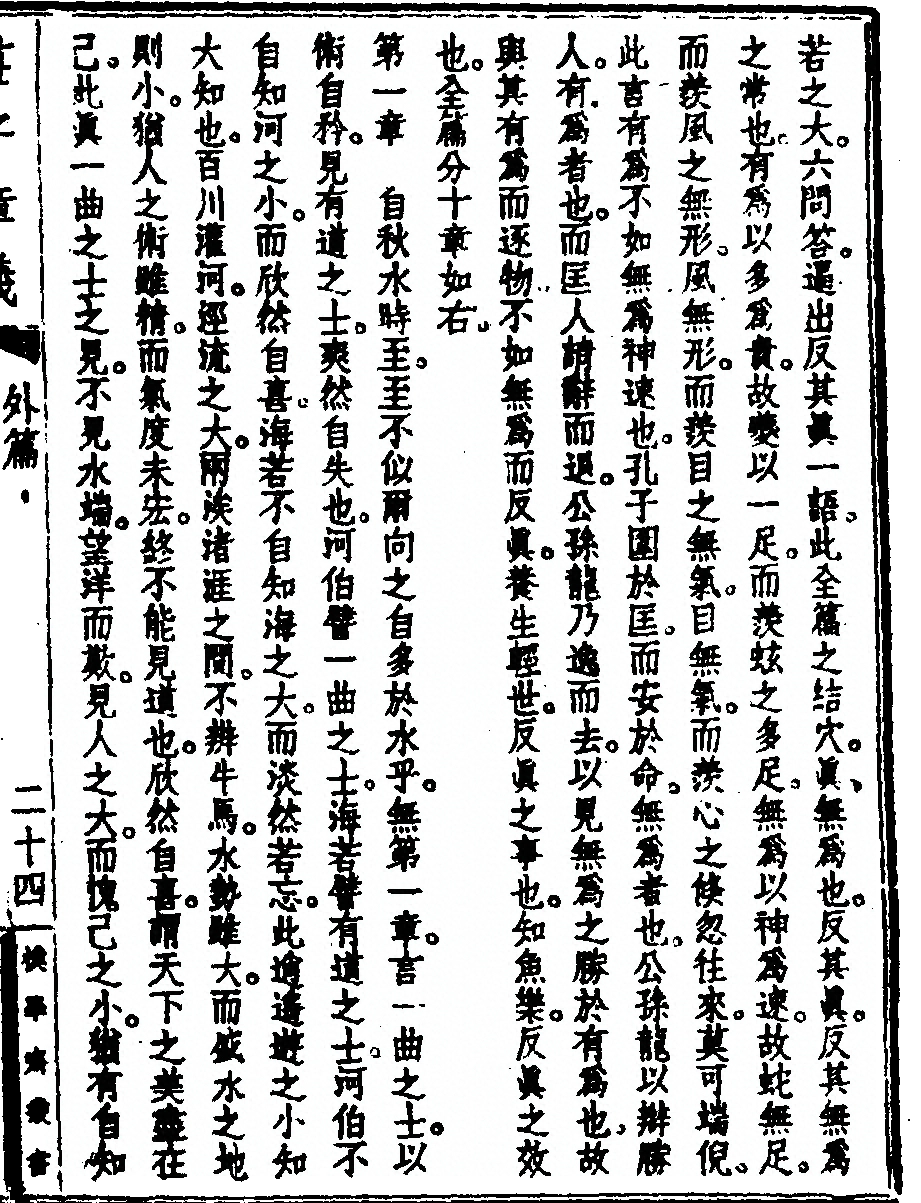 若之大。六問答。逼出反其眞一語。此全篇之結穴。眞、無爲也。反其眞。反其無爲
之常也。有爲以多爲貴。故夔以一足。而羨蚿之多足。無爲以神爲速。故蛇無足。
而羨風之無形。風無形。而羨目之無氣。目無氣。而羨心之倏忽往來。莫可端倪。
此言有爲不如無爲神速也。孔子圍於匡。而安於命。無爲者也。公孫龍以辯勝
人。有爲者也。而匡人請辭而退。公孫龍乃逸而去。以見無爲之勝於有爲也。故
與其有爲而逐物。不如無爲而反眞。養生輕世。反眞之事也。知魚樂。反眞之效
也。全篇分十章如右。
第一章　自秋水時至。至不似爾向之自多於水乎。無第一章。言一曲之士。以
術自矜。見有道之士。爽然自失也。河伯譬一曲之士。海若譬有道之士。河伯不
自知河之小。而欣然自喜。海若不自知海之大。而淡然若忘。此逍遙遊之小知
大知也。百川灌河。逕流之大。兩涘渚涯之間。不辨牛馬。水勢雖大。而盛水之地
則小。猶人之術雖精。而氣度未宏。終不能見道也。欣然自喜。謂天下之美盡在
己。此眞一曲之士之見。不見水端。望洋而歎。見人之大。而愧己之小。猶有自知
莊子章義
外篇．
二十四
樸學齋叢書